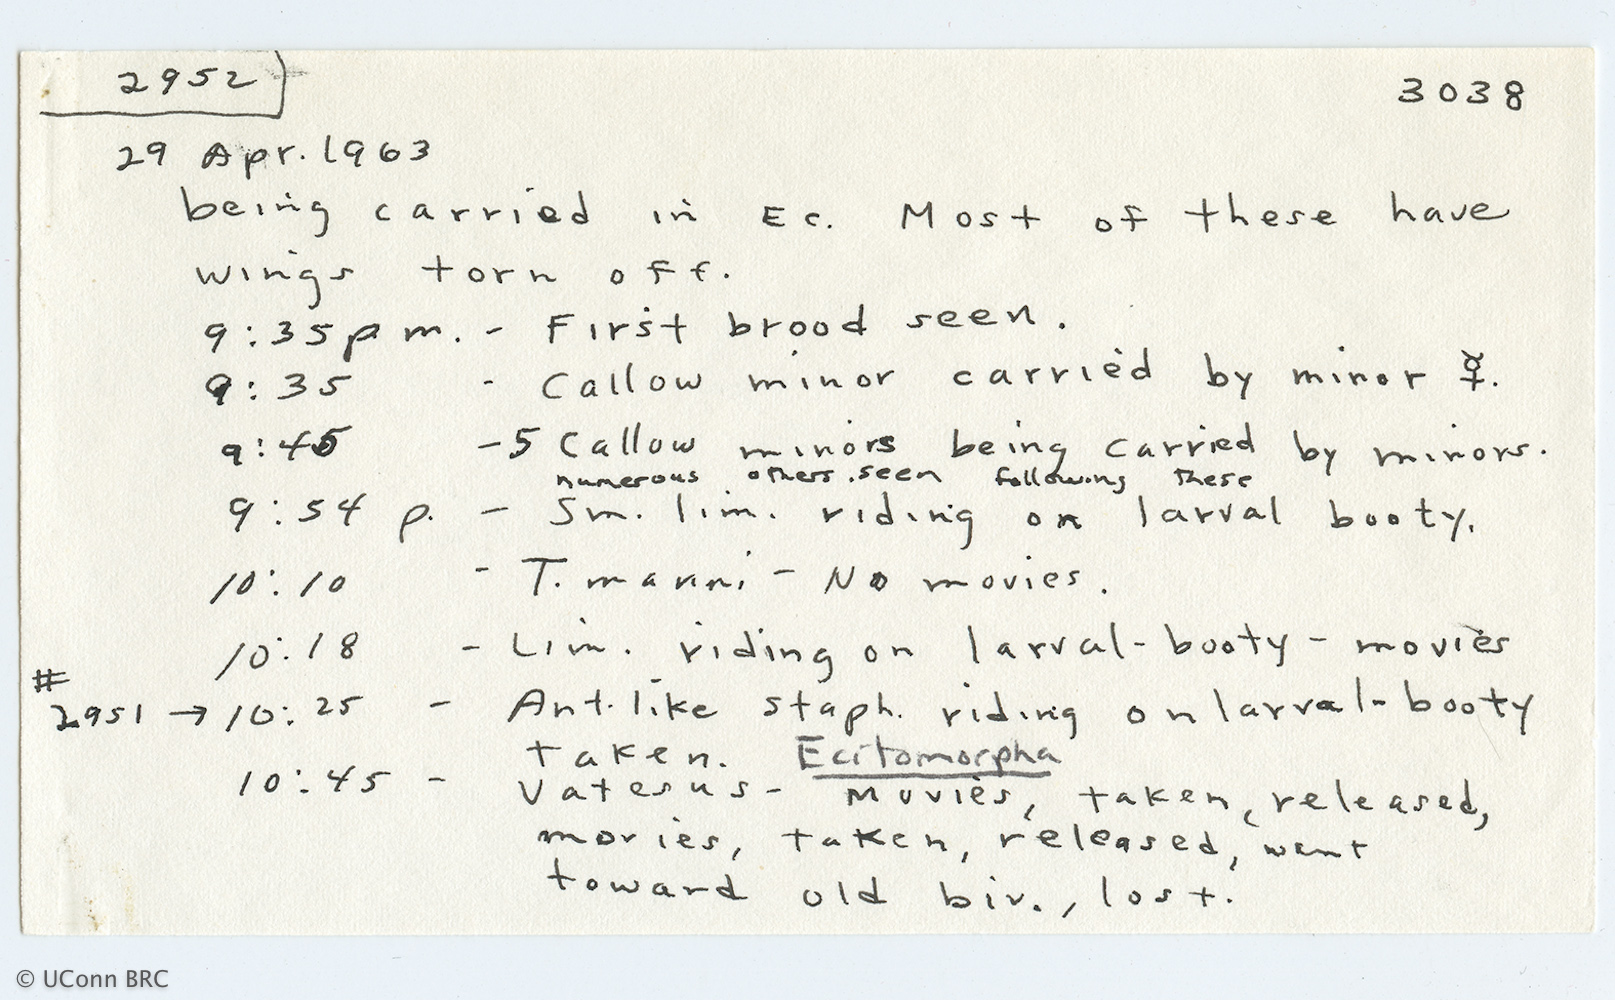 2952
3038
29 Apr. 1963
being carried in Ec. Most of these have
wings torn off.
9:35 p m. - First brood seen.
9:35 - Callow minor carried by minor ☿.
9:45 - 5 Callow minors being carried by minors.
numerous others seen following these
9:54 p. - Sm. lim. riding on larval booty.
10:10 - T. manni - No movies.
10:18 - Lim. riding on larval-booty - movies
#
2951 → 10:25 - Ant.like staph. riding on larval-booty
taken. Ecitomorpha
10:45 - Vatesus - Movies, taken, released,
movies, taken, released, went
toward old biv., lost.
© UConn BRC